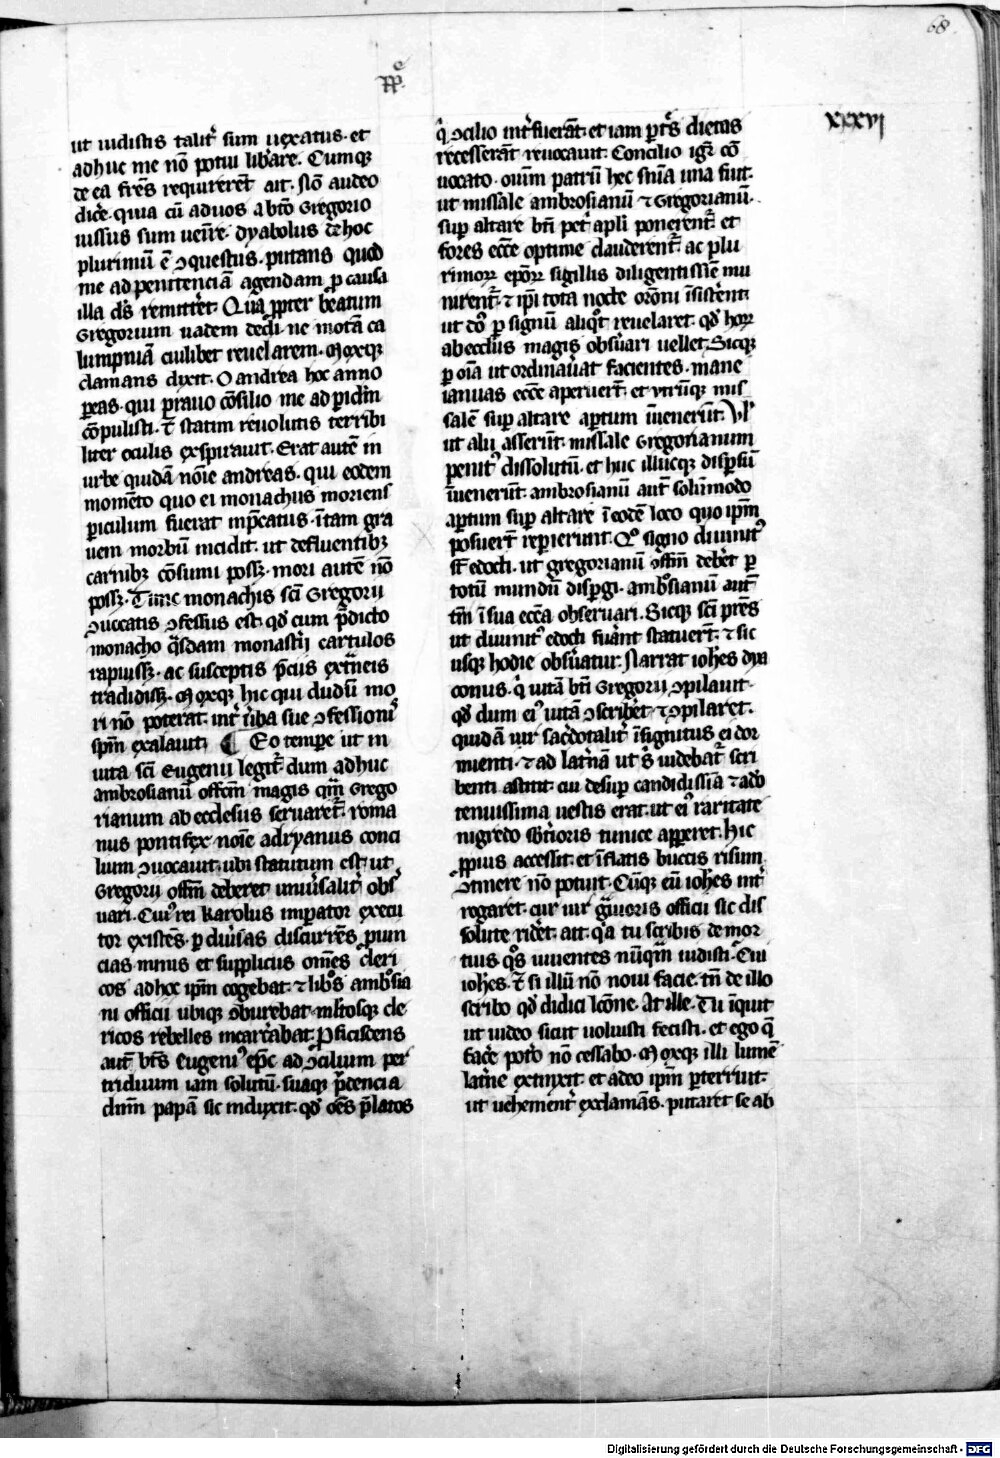 68
xxxvj
ut uidistis talit᷑ sum uexatus · et
adhuc me nō potui lib̾are · Cumqꝫ
de ea fr̄es requirerēt ait · Nō audeo
dic̾e · quia cū ad uos a bt̄o Gregorio
iussus sum uenı̄re · dyabolus de hoc
plurimū ē ꝯquestus · putans quod
me ad penitenciā agendam ꝑ causa
illa dn̄s remitt̾et · Quā ꝓpter beatum
Gregorium uadem dedi ne motā ca
lumpniā cuilibet reuelarem · Moxqꝫ
clamans dixit · O andrea hoc anno
ꝑeas · qui ꝑrauo cōsilio me ad ꝑicl̄m
cōpulisti · ⁊ statim reuolutis terribi
liter oculis exspirauit · Erat autē in
urbe quidā noīe andreas · qui eodem
momēto quo ei monachus moriens
ꝑiculum fuerat īp̄catus · ītam gra
uem morbū incidit · ut defluentibꝫ
carnibꝫ cōsumi possꝫ · mori autē nō
possꝫ · Tunc monachis sc̄i Gregorii
ꝯuocatis ꝯfessus est · qd̄ cum p̄dicto
monacho q̄sdam monast̾ij cartulos
rapuissꝫ · ac susceptis p̄cıis ext̾neis
tradidissꝫ · Moxqꝫ hic qui dudū mo
ri nō poterat · int̾ u̾ba sue ꝯfessionis
sp̄m exalauit · ¶ Eo tempe ut in
uita sc̄i Eugenii legit᷑ dum adhuc
ambrosianū offm̄ magis qm̄ Grego
rianum ab ecclesiis seruaret᷑ · roma
nus pontifex noīe adryanus conci
lium ꝯuocauit · ubi statutum est · ut
Gregorii offm̄ deberet uniu̾salit᷑ obs̾
uari · Cuiꝰ rei karolus imꝑator execu
tor existēs · ꝑ diu̾sas discurrēs ꝓuin
cias minis et suppliciis om̄es cleri
cos ad hoc ip̄m cogebat · ⁊ libros ambrosia
ni officii ubiqꝫ ꝯburebat · mltosqꝫ cle
ricos rebelles incarc̾abat · Pficiscens
aut̄ bt̄s Eugeniꝰ ep̄c ad ꝯcilium per
triduum iam solutū · suaqꝫ p̄dencia
dnm̄ papam sic induxit · qd̄ oēs p̄latos
q̇ ꝯcilio int̾fuerāt · et iam ꝑt̄s dietas
recesserāt reuocauit · Concilio igr̄ cō
uocato · oı̄um patrū hec sn̄ia una fuit ·
ut missale ambrosianū ⁊ Gregorianū ·
suꝑ altare bt̄i pet̾ apl̄i ponerent᷑ et
fores ecc̄e optime clauderent᷑ ac plu
rimoꝝ ep̄oꝝ sigillis diligentissı̄e mu
nirent᷑ · ⁊ ip̄i tota nocte or̄oni īsist̾ent ·
ut dō ꝑ signū aliqd̄ reuelaret · qd̄ hoꝝ
ab ecclı̄is magis obsu̾ari uellet · Sicqꝫ
ꝑ oīa ut ordinau̾at facientes · mane
ianuas ecc̄e aperuer̄t · et vtrūqꝫ mis
salē suꝑ altare aꝑtum īuenerūt · Vl̾
ut alii asserūt · missale Gregorianum
penitꝰ dissolutū · et huc illucqꝫ disꝑsū
īuenerūt · ambrosianū aut̄ solūmodo
aꝑtum suꝑ altare ī eodē loco quo ip̄m
posuer̄t reꝑierunt · Quo signo diuinitꝰ
st̄ edocti · ut gregorianū offm̄ deb̾et ꝑ
totū mundū disꝑgi · ambrosianū aut̄
tm̄ ī sua ecc̄a obseruari · Sicqꝫ sc̄i pr̄es
ut diuinitꝰ edocti fu̾ant statuer̄t · ⁊ sic
usqꝫ hodie obsu̾atur · Narrat ioh̄es dya
conus · q̇ uitā bt̄i Gregorij ꝯpilauit ·
qd̄ dum eiꝰ uitā ꝯscrib̾et ⁊ ꝯpilaret ·
quidā uir sac̾dotalit᷑ īsignitus ei dor
mienti · ⁊ ad lat̾nā ut s̄ uidebat᷑ scri
benti astitit · cui desuꝑ candidissīa ⁊ adeo
tenuissima uestis erat · ut eiꝰ raritate
nigredo sbt̾ioris tunice apꝑeret · Hic
ꝓpius accessit · et īflatis buccis risum
ꝯtinere nō potuit · Cūqꝫ eū ioh̄es int̾
rogaret · cur uir g̾uioris officii sic dis
solute rid̾et · ait · qa tu scribis de mor
tuis qos uiuentes nūqm̄ uidisti · Cui
ioh̄es · ⁊ si illū nō noui facie · tn̄ de illo
scribo qd̄ didici lc̄one · At ille · Tu īquit
ut uideo sicut uoluisti fecisti · et ego q̄
fac̾e pot̾o nō cessabo · Moxqꝫ illi lumē
lat̾ne extinxit · et adeo ip̄m ꝑterruit ·
ut uehement᷑ exclamās · putaret se ab
Digitalisierung gefördert durch die Deutsche Forschungsgemeinschaft - DFG